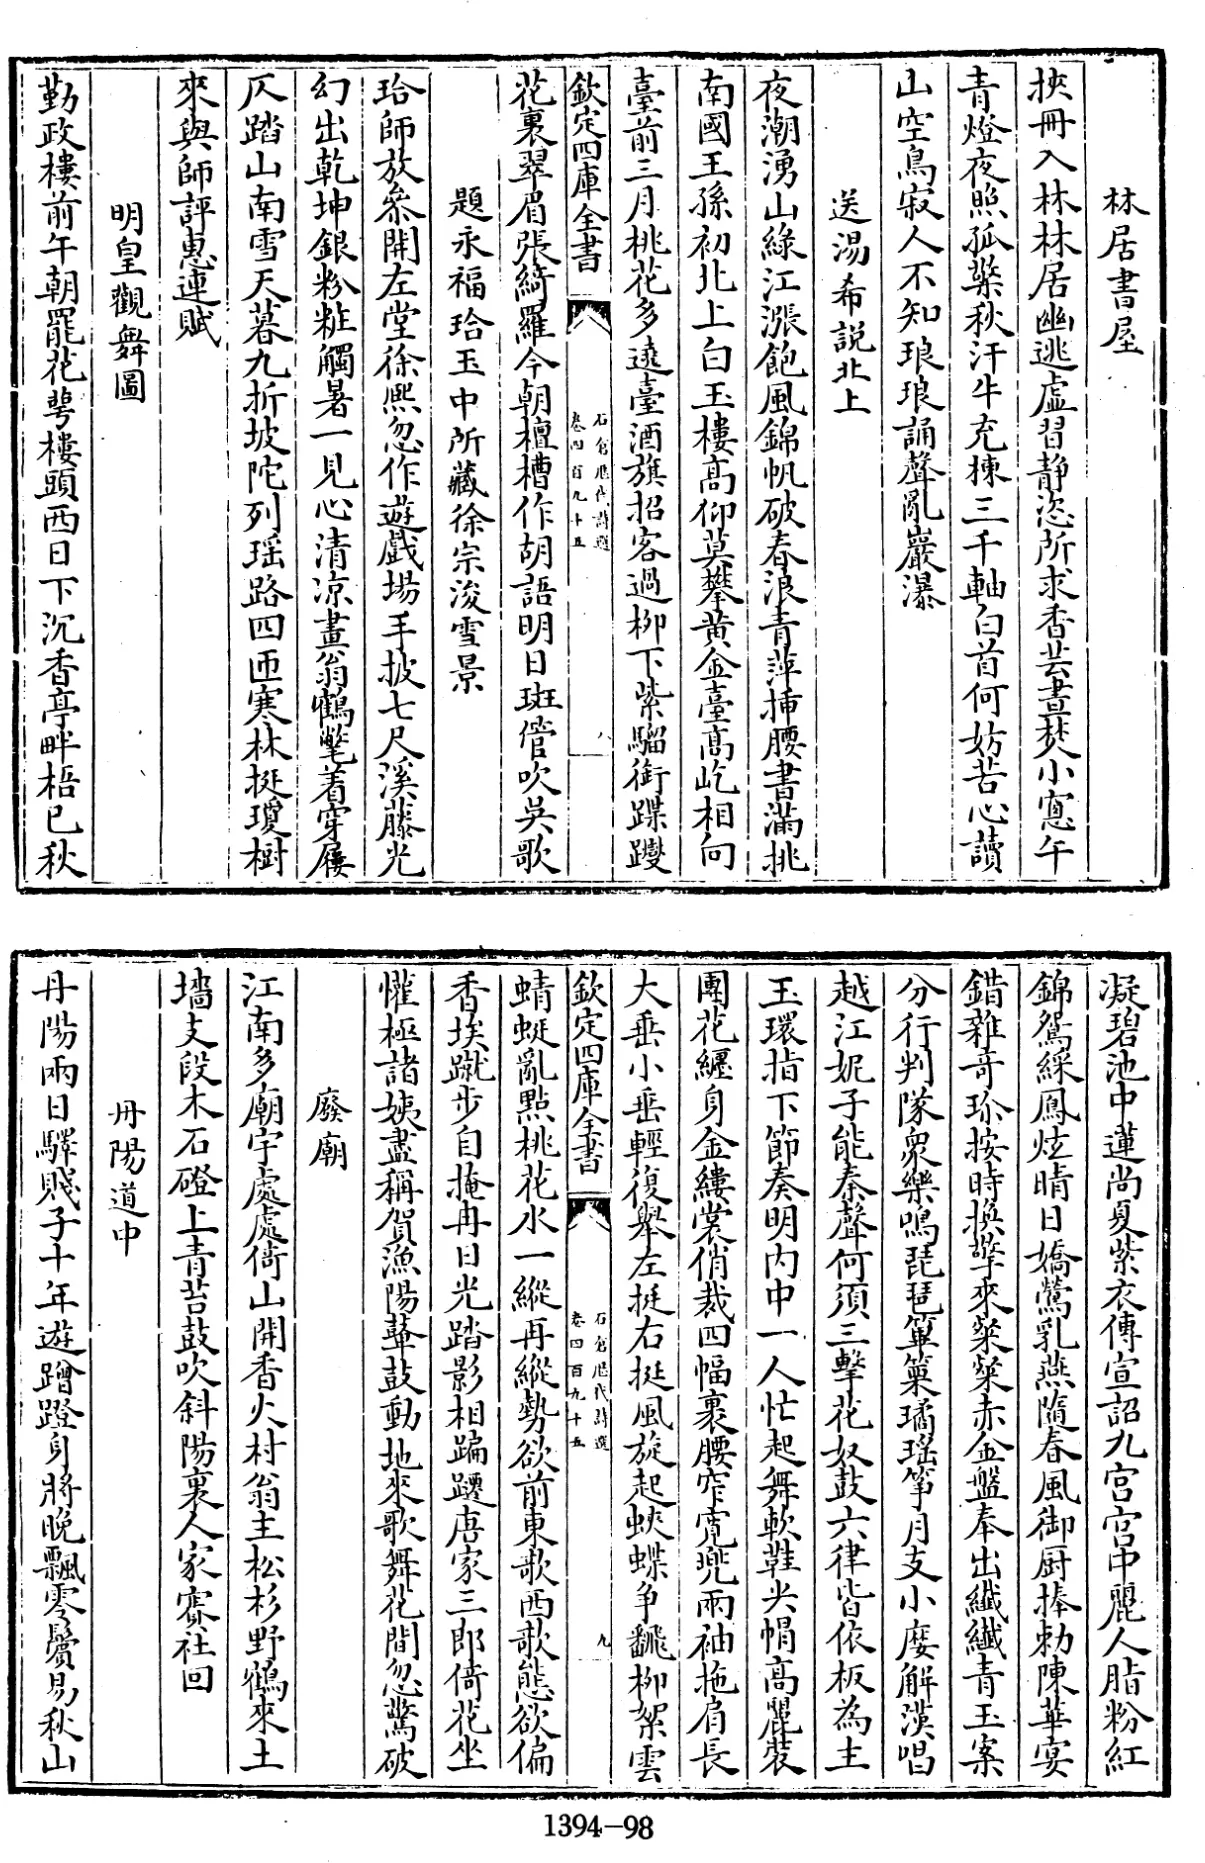 林居書屋
挾冊入林林居幽逃虛習静恣所求香芸晝焚小窻午
青燈夜照孤檠秋汗牛充棟三千軸白首何妨苦心讀
山空鳥寂人不知琅琅誦聲亂巖瀑
送湯希説北上
夜潮湧山綠江漲飽風錦帆破春浪青萍揷腰書滿挑
南國王孫初北上白玉樓高仰莫攀黄金臺高屹相向
臺前三月桃花多遶臺酒旗招客過柳下紫騮銜蹀躞
欽定四庫全書
石倉歷代詩選
卷四百九十五
八
花裏翠眉張綺羅今朝檀槽作胡語明日斑管吹吳歌
題永福珆玉中所藏徐宗浚雪景
珆師放衆開左堂徐熙忽作遊戲場手披七尺溪藤光
幻出乾坤銀粉粧觸暑一見心清凉畫翁鶴氅着穿屨
仄踏山南雪天暮九折坡陀列瑶路四匝寒林挺瓊樹
來與師評惠連賦
明皇觀舞圖
勤政樓前午朝罷花萼樓頭西日下沉香亭畔梧已秋
凝碧池中蓮尚夏紫衣傳宣詔九宫宫中麗人脂粉紅
錦鴛綵鳳炫晴日嬌鶯乳燕隨春風御厨捧勅陳華宴
錯雜竒珍按時換擎來粲粲赤金盤奉出纖纖青玉案
分行判隊衆樂鳴琵琶篳篥璚瑶筝月支小麼解漢唱
越江妮子能秦聲何須三擊花奴鼓六律皆依板為主
玉環指下節奏明内中一人忙起舞軟鞋尖帽高麗裝
團花纒身金縷裳俏裁四幅裹腰窄寛兠兩袖拖肩長
大垂小垂輕復舉左挺右挺風旋起蛺蝶争飜柳絮雲
欽定四庫全書
石倉歷代詩選
卷四百九十五
九
蜻蜓亂點桃花水一縱再縱勢欲前東歌西歌態欲偏
香埃蹴步自掩冉日光踏影相蹁躚唐家三郎倚花坐
懽極諸姨盡稱賀漁陽鼙鼓動地來歌舞花間忽驚破
廢廟
江南多廟宇處處倚山開香火村翁主松杉野鶴來土
墻支段木石磴上青苔鼓吹斜陽裏人家賽社回
丹陽道中
丹陽兩日驛賤子十年遊蹭蹬身將晚飄零鬢易秋山
1394—98